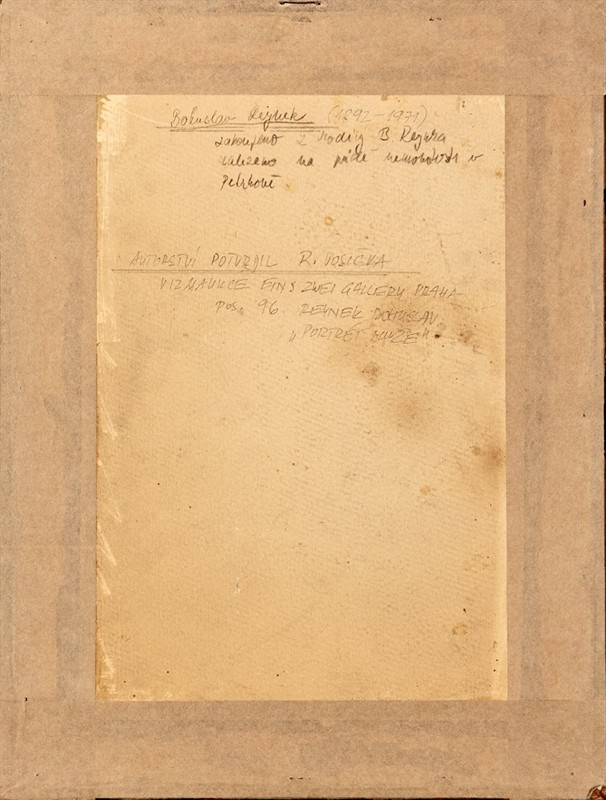 Bohuslav Reynek (1892-1971)
zakoupeno z rodiny B. Reynka
nalezeno na půdě nemovitosti v
Petrkově
AUTORSTVÍ POTVRDIL R. VOSIČKA
VIZ AUKCE EINS ZWEI GALLERY PRAHA
POS. 96 REYNEK BOHUSLAV
„PORTRÉT MUŽE"